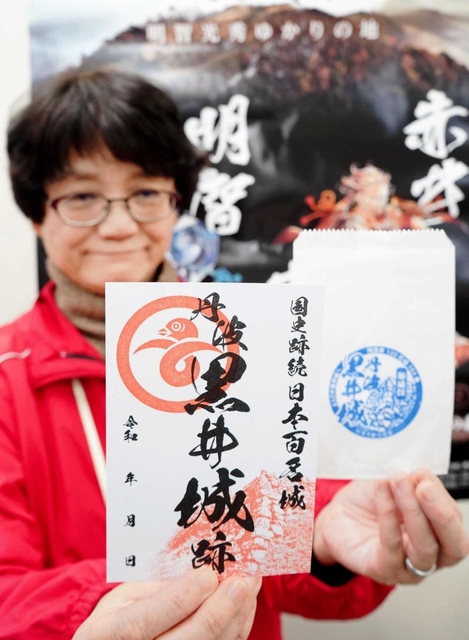 明智光秀ゆかりの地
赤井
明智
国史跡
続日本百名城
丹波
黒井城跡
令和 年 月 日
丹波
黒井城